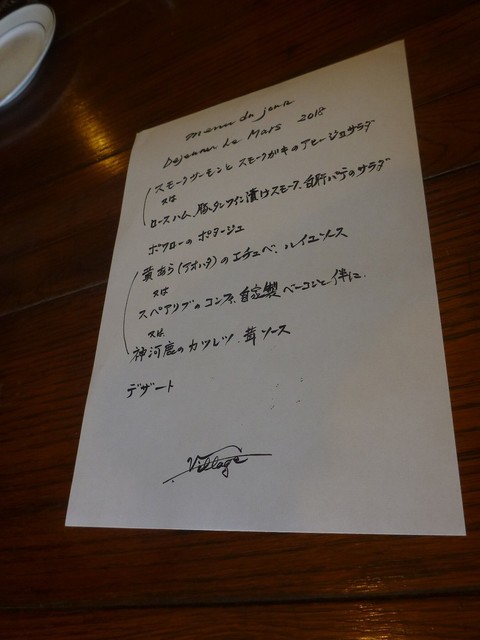 menu du jour
Dejeuner de Mars 2018
スモークサーモンと スモークガキのアヒージョサラダ
又は
ロースハム、豚タンワイン漬けスモーク、自家パテのサラダ
ポワローの ポタージュ
黄あら(アオハタ)の エチュベ、ルイユソース
又は
スペアリブの コンフィ、自家製 ベーコンと 伴に
又は
神河鹿の カツレツ 茸ソース
デザート
Village